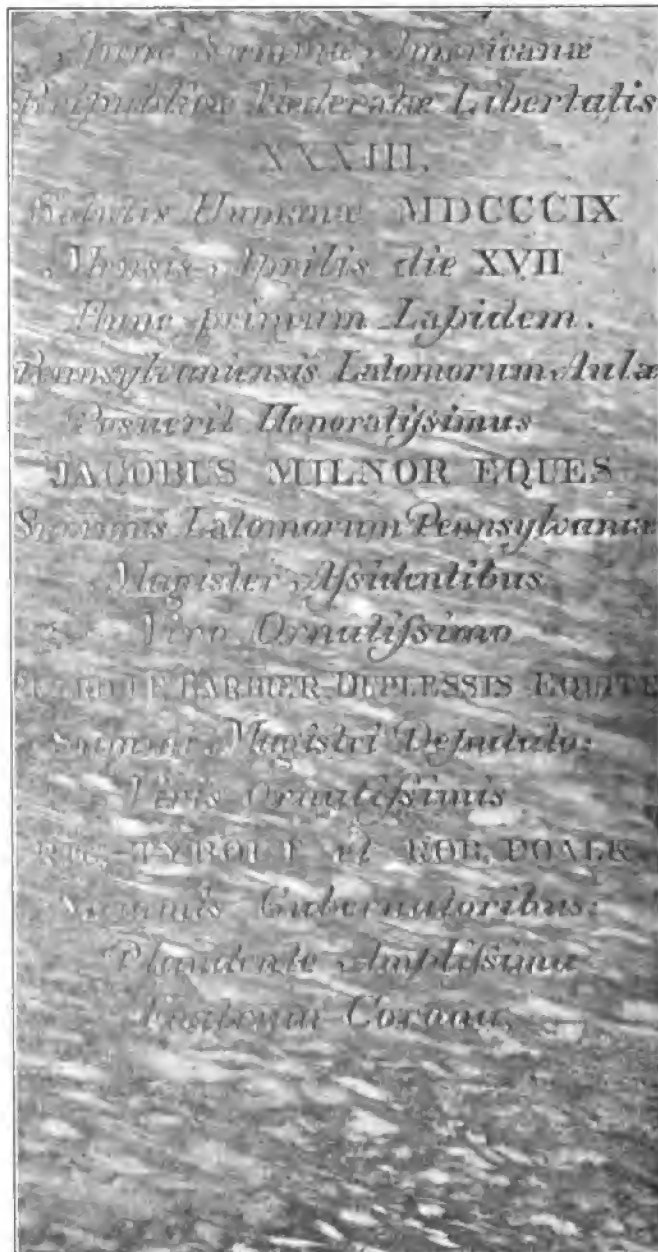 Anno Summæ Americanæ
Reipublicæ Federatæ Libertatis
XXXIII.
Salutis Humanæ MDCCCIX
Mensis Aprilis die XVII
Hunc primum Lapidem.
Pennsylvaniensis Latomorum Aulæ
Posuerit Honoratiſsimus
JACOBUS MILNOR EQUES
Summus Latomorum Pennsylvaniæ
Magister Aſsidentibus
Viro Ornatiſsimo
BARBIER-DEPLESSIS EQUITE
Summi Magistri Deputato:
Viris Ornatiſsimis
RIC. TYBOUT et ROB. POALK
Summis Gubernatoribus:
Plaudente Ampliſsima
Fratrum Corona.